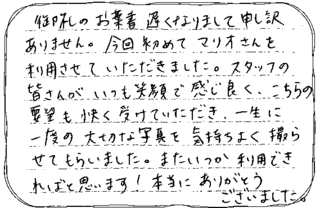 御礼のお葉書遅くなりまして申し訳
ありません。今回初めてマリオさんを
利用させていただきました。スタッフの
皆さんが、いつも笑顔で感じ良く、こちらの
要望も快く受けていただき、一生に
一度の大切な写真を気持ちよく撮ら
せてもらいました。またいつか利用でき
ればと思います！本当にありがとう
ございました。